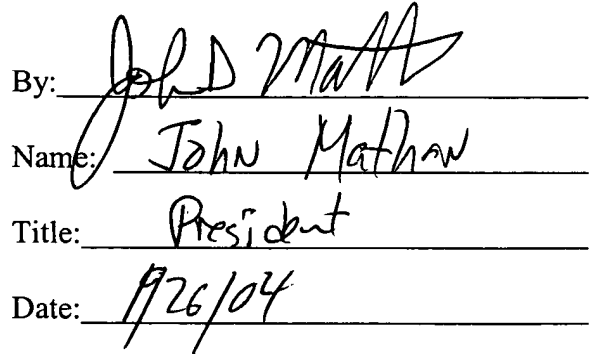 By: John D Matt
Name: John Mathew
Title: President
Date: 1/26/04